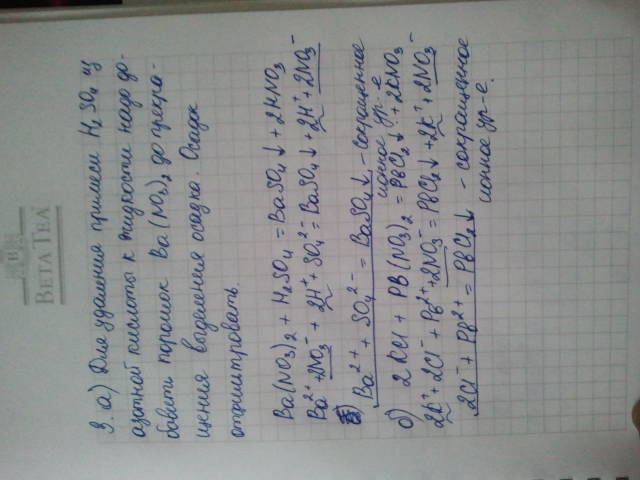 BETA TEA
3. а) Для удаления примеси H₂SO₄ из
азотной кислоты к жидкости надо до-
бавить порошок Ba(NO₃)₂ до прекра-
щения выделения осадка. Осадок
отфильтровать.
Ba(NO₃)₂ + H₂SO₄ = BaSO₄↓ + 2HNO₃
Ba²⁺ + 2NO₃⁻ + 2H⁺ + SO₄²⁻ = BaSO₄↓ + 2H⁺ + 2NO₃⁻
Ba²⁺ + SO₄²⁻ = BaSO₄↓ - сокращенное
ионное ур-е
б) 2KCl + PB(NO₃)₂ = PbCl₂↓ + 2KNO₃
2K⁺ + 2Cl⁻ + Pb²⁺ + 2NO₃⁻ = PbCl₂↓ + 2K⁺ + 2NO₃⁻
2Cl⁻ + Pb²⁺ = PbCl₂↓ - сокращенное
ионное ур-е.